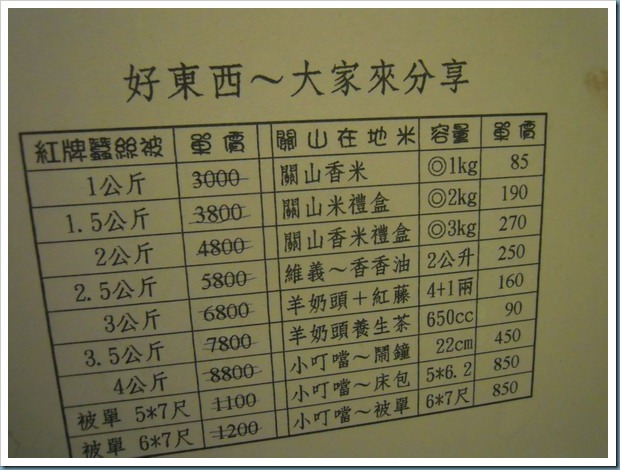 好東西～大家來分享
紅牌蠶絲被 單價 關山在地米 容量 單價
1公斤 3000 關山香米 ◎1kg 85
1.5公斤 3800 關山米禮盒 ◎2kg 190
2公斤 4800 關山香米禮盒 ◎3kg 270
2.5公斤 5800 維義～香香油 2公升 250
3公斤 6800 羊奶頭＋紅藤 4+1兩 160
3.5公斤 7800 羊奶頭養生茶 650cc 90
4公斤 8800 小叮噹～鬧鐘 22cm 450
被單 5*7尺 1100 小叮噹～床包 5*6.2 850
被單 6*7尺 1200 小叮噹～被單 6*7尺 850